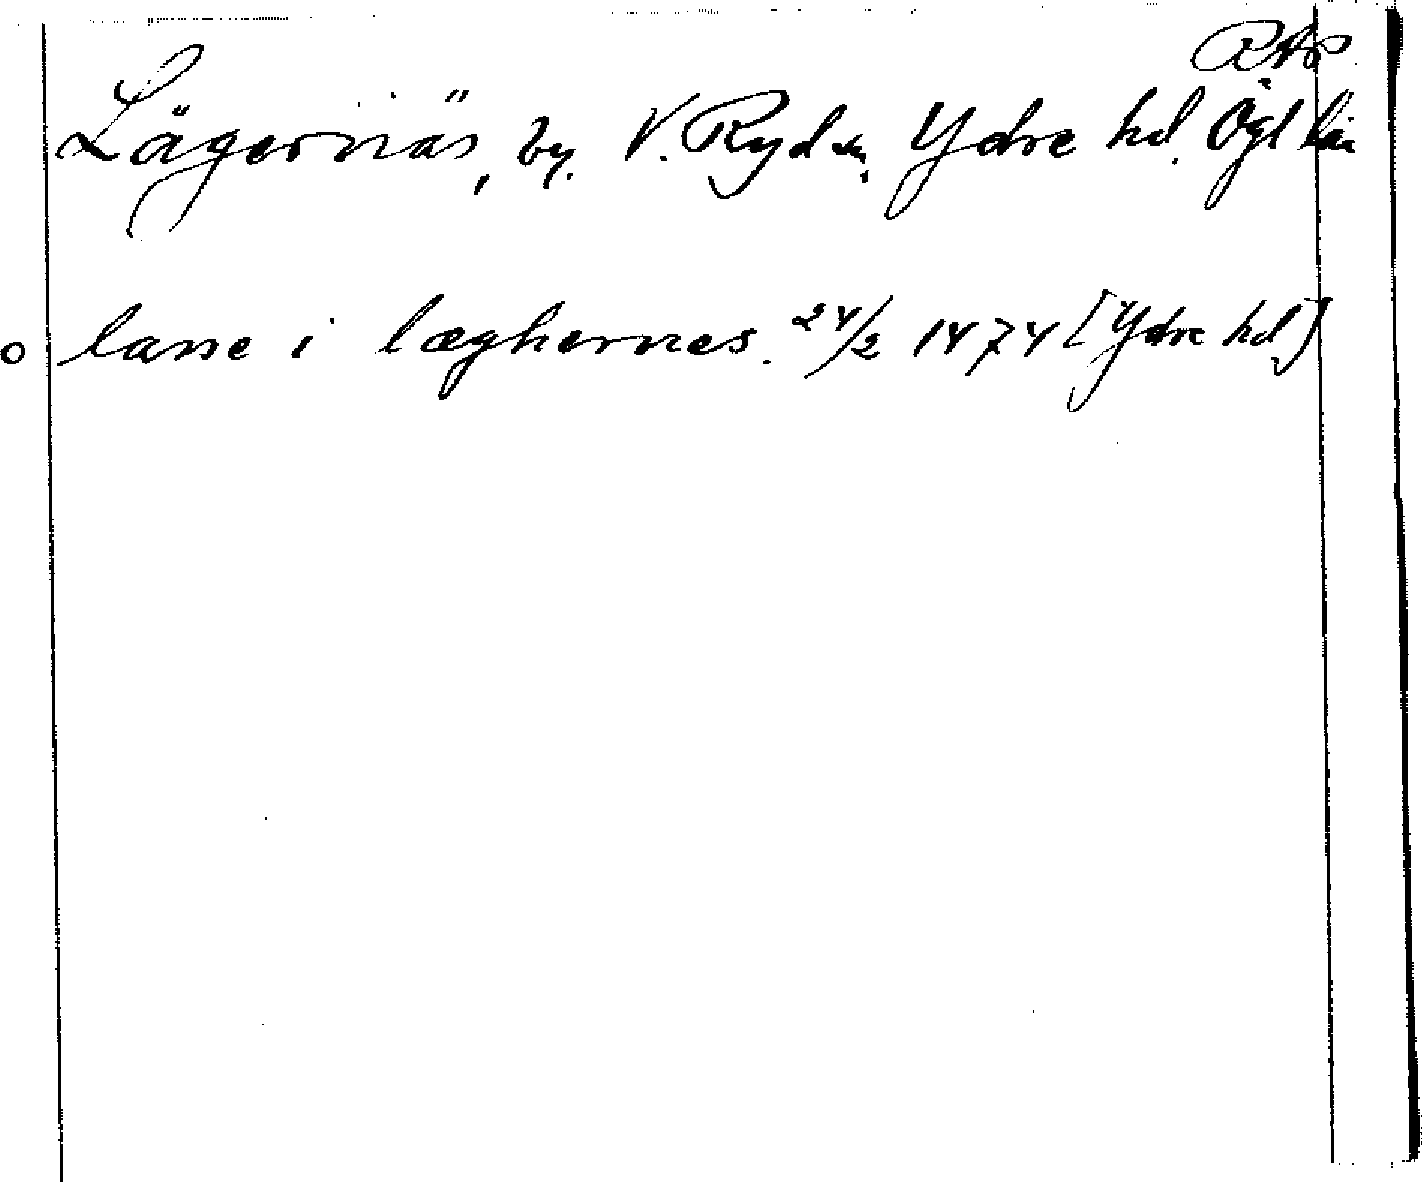 RAp
Lägernäs, by. V. Ryd sn, Ydre hd. Ögl län
o lasse i læghernes. 24/2 1474 [Ydre hd]